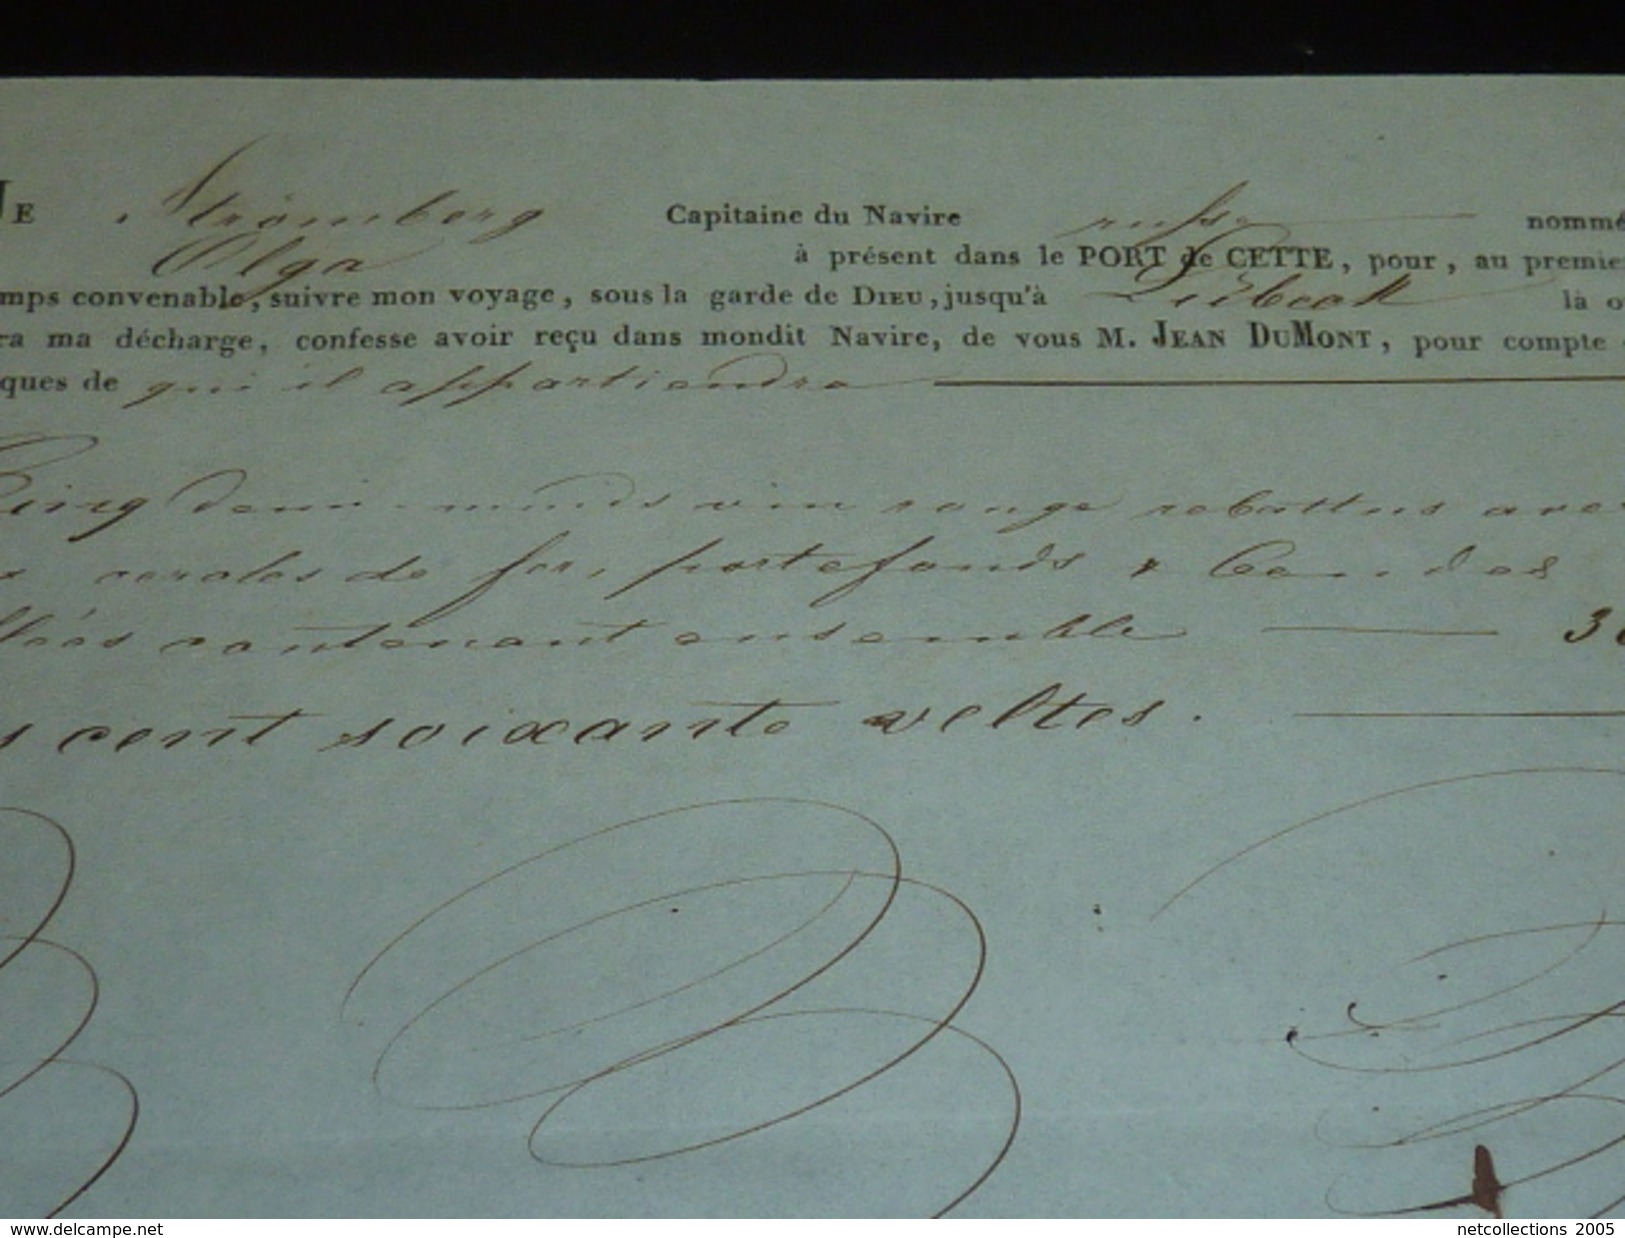 JE Strömberg Capitaine du Navire russe nommé
Olga à présent dans le PORT de CETTE, pour, au premie
mps convenable, suivre mon voyage, sous la garde de DIEU, jusqu'à Lübeck là o
ra ma décharge, confesse avoir reçu dans mondit Navire, de vous M. JEAN DUMONT, pour compte
ques de qui il appartiendra
Cinq demi-muids vin rouge rebattus ave
cercles de fer, portefonds &
contenant ensemble 36
s cent soixante veltes.
delcampe.net
netcollections 2005